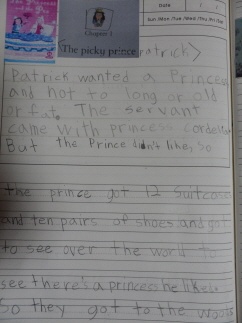 Date
Sun / Mon / Tue / Wed / Thu / Fri / Sat
Chapter 1
<The picky prince patrick>
Patrick wanted a Princess
and not to long or old
or fat. The servant
came with princess cordelia
But the Prince didn't like, so
the prince got 12 suitcase
and ten pairs of shoes and got
to see over the world to
see there's a princess he likes.
So they got to the woods